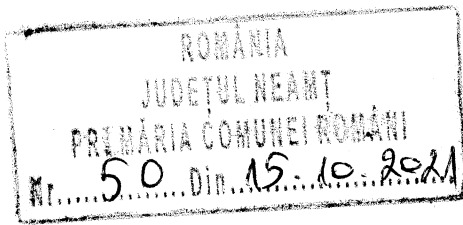 ROMÂNIA
JUDEȚUL NEAMȚ
PRIMĂRIA COMUNEI ROMÂNI
Nr......50......Din..15.10.2021